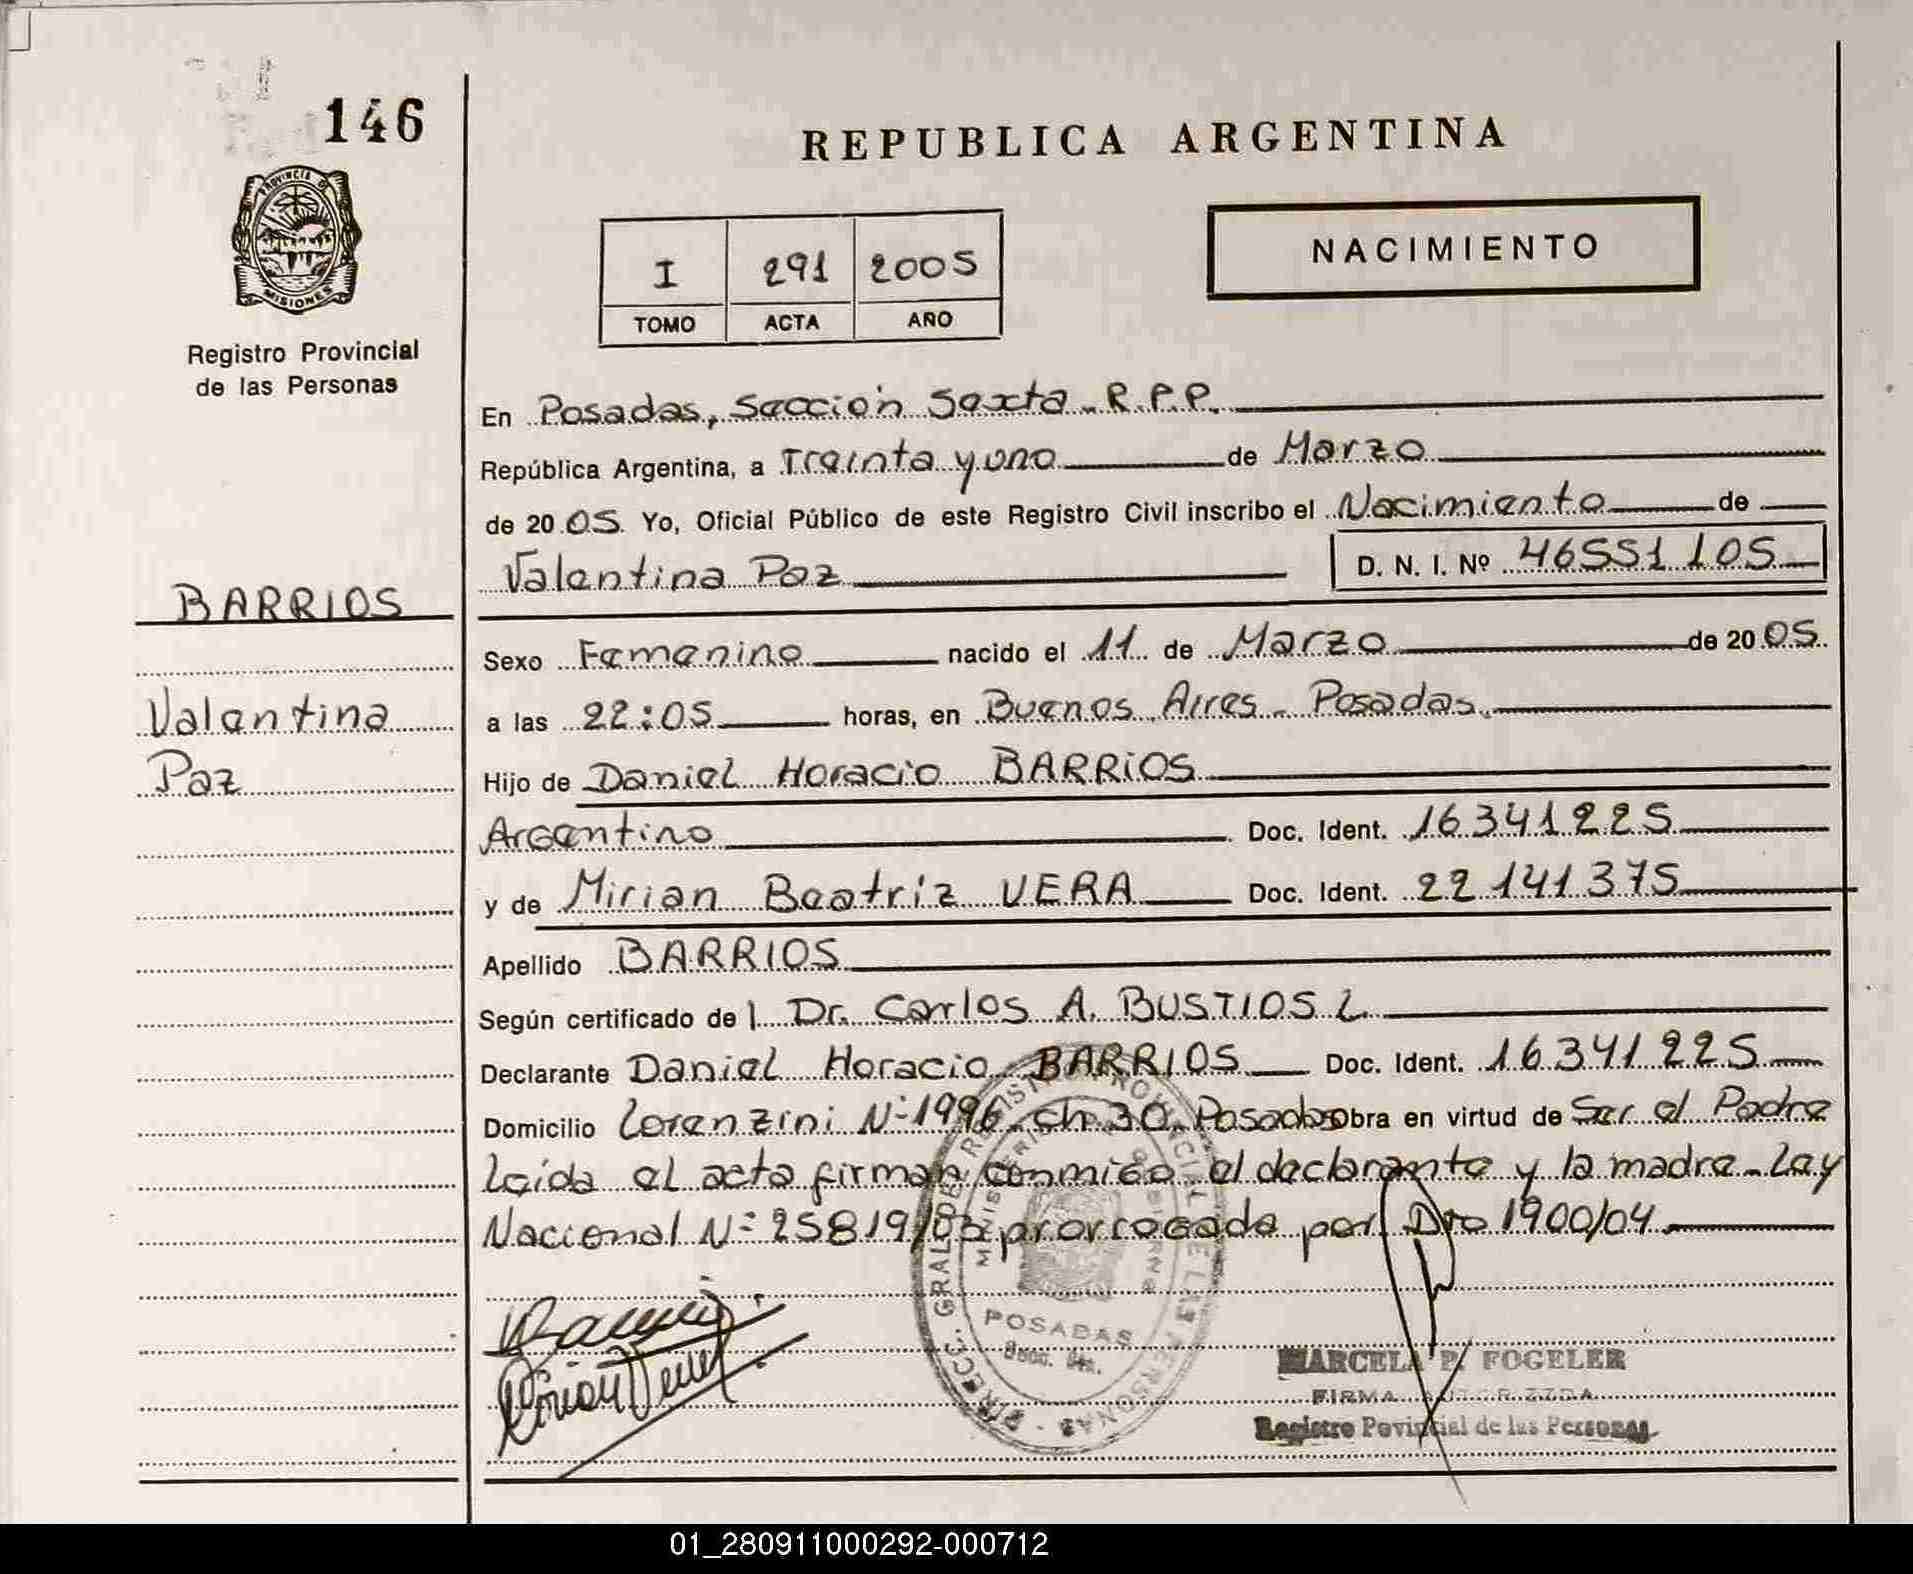 146
PROVINCIA DE
MISIONES
Registro Provincial
de las Personas
REPUBLICA ARGENTINA
I 291 2005
TOMO ACTA AÑO
NACIMIENTO
En Posadas, Sección Sexta. R.P.P.
República Argentina, a Treinta y uno de Marzo
de 2005. Yo, Oficial Público de este Registro Civil inscribo el Nacimiento de
Valentina Paz D. N. I. Nº 46551105
BARRIOS
Valentina
Paz
Sexo Femenino nacido el 11 de Marzo de 2005.
a las 22:05 horas, en Buenos Aires - Posadas.
Hijo de Daniel Horacio BARRIOS
Argentino Doc. Ident. 16341225
y de Mirian Beatriz VERA Doc. Ident. 22141375
Apellido BARRIOS
Según certificado de l Dr. Carlos A. BUSTIOS L
Declarante Daniel Horacio BARRIOS Doc. Ident. 16341225
Domicilio Lorenzini Nº 1996 - ch. 30. Posadas obra en virtud de Ser el Padre
Leída el acta firman conmigo el declarante y la madre - Ley
Nacional Nº 25819/03 prorrogada por Dto 1900/04
DIRECC. GRAL. DE REGISTRO PROVINCIAL DE LAS PERSONAS
MINISTERIO DE GOBIERNO
POSADAS
Secc. 6ta.
MARCELA P. FOGELER
FIRMA AUTORIZADA
Registro Povincial de las Personas
01_280911000292-000712